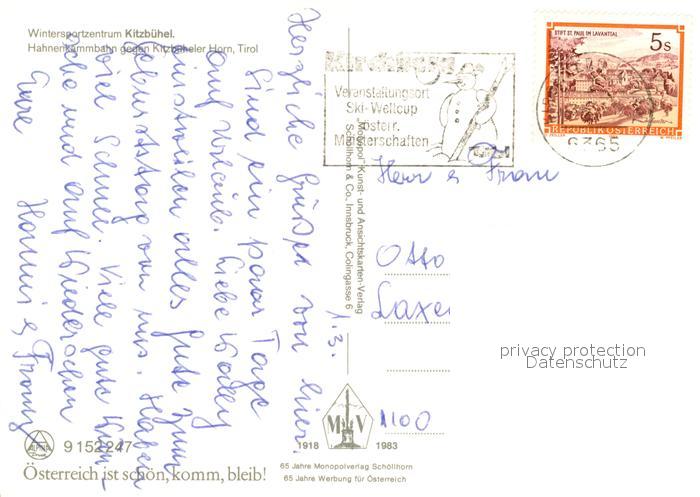 Wintersportzentrum Kitzbühel.
Hahnenkammbahn gegen Kitzbüheler Horn, Tirol
1.3.
Herzliche Grüße von hier.
Sind ein paar Tage
auf Urlaub. Liebe Wally
wünschen alles Gute zum
Geburtstag von uns. Haben
viel Schnee. Viele gute
und auf Wiedersehen
Eure Hanni & Franz
"Monopol" Kunst- und Ansichtskarten-Verlag
Schöllhorn & Co., Innsbruck, Colingasse 6
Kirchberg
Veranstaltungsort
Ski-Weltcup
österr.
Meisterschaften
STIFT ST. PAUL IM LAVANTTAL
5s
REPUBLIK ÖSTERREICH
6365
Herr & Frau
Otto
Laxe
1100
privacy protection
Datenschutz
M V
1918 1983
65 Jahre Monopolverlag Schöllhorn
65 Jahre Werbung für Österreich
9 152 247
Österreich ist schön, komm, bleib!